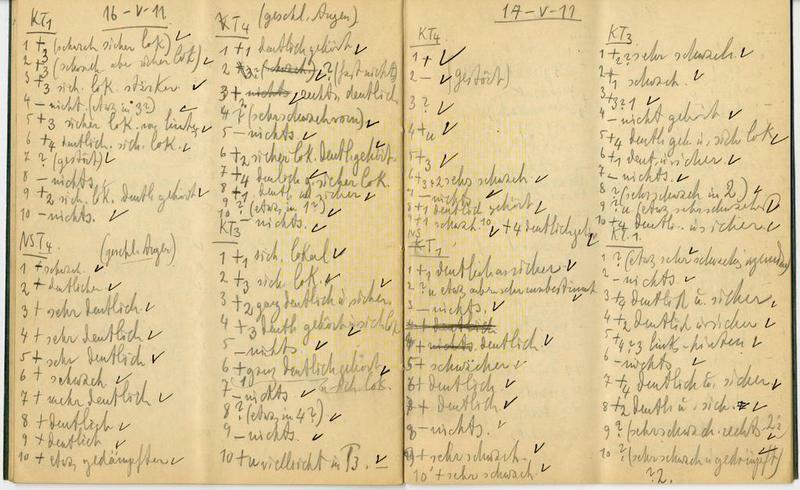 KT1 16-V-11
1 +3 (schwach sicher lok)
2 +3 (schwach aber sicher lok)
3 +3 sich. lok. stärker
4 – nicht. (etwa in 3?)
5 +3 sicher lok.
6 +4 deutlich. sich. lok.
7 ? (gestört)
8 – nichts.
9 +2 sich. lok. deutl. gehört
10 – nichts.
NST4. (geschl. Augen)
1 + schwach.
2 + deutlicher
3 + sehr deutlich.
4 + sehr deutlich
5 + sehr deutlich
6 + schwach
7 + mehr deutlich
8 + deutlich
9 + deutlich
10 + etwas gedämpfter
KT4 (geschl. Augen)
1 +1 deutlich gehört
2 (schwach) ? (fast nichts)
3 + nichts rechts, deutlich
4 ? (sehr schwach vorn)
5 – nichts.
6 +2 sicher lok. deutl. gehört
7 +4 deutlich u. sicher lok.
8 +1 deutl. u. sicher
9 ? (etwa in 1?)
10 – nichts.
KT3
1 +1 sich. lokal
2 +3 sich. lok.
3 +2 ganz deutlich u. sicher.
4 +3 deutl. gehört u. sich. lok
5 – nichts
6 + ganz deutlich gehört
u. sich. lok.
7 – nichts
8 ? (etwa in 4?)
9 – nichts.
10 + u vielleicht in T3.
17-V-11
KT4
1 +
2 – (gestört)
3 ?
4 +u
5 +3
6 +2 sehr schwach
7 – nichts
8 +1 deutlich gehört
9 +1 schwach. 10 +4 deutlich geh.
NS KT1
1 +1 deutlich u. sicher
2 ? u etwas aber sehr unbestimmt
3 – nichts.
4 + deutlich
4 + nichts. deutlich
5 + schwächer
6 + deutlich
7 + deutlich
8 – nichts.
9 + sehr schwach
10 + sehr schwach
KT3
1 +2? sehr schwach.
2 schwach.
3 +3?1
4 – nicht gehört
5 +4 deutl. geh. u. sich lok
6 +1 deut. u. sicher
7 – nichts.
8 ? (sehr schwach in 2)
9 ? u (etwa sehr schwach
10 +4 deutl. u. sicher
KT1.
1 ? (etwas sehr schwach irgendwo)
2 – nichts.
3 +3 deutlich u. sicher
4 +2 deutlich u. sicher
5 +4?3 links hinten
6 – nichts
7 +4 deutlich u. sicher
8 +2 deutl. u. sich.
9 ? (sehr schwach. rechts 2?
10 ? (sehr schwach u. gedämpft)
?2.